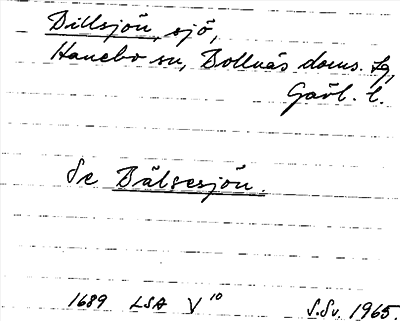 Dillsjön, sjö,
Hanebo sn, Bollnäs doms. tg,
Gävl. l.
Se Bälsesjön.
1689 LSA V 10
S.Sv. 1965.